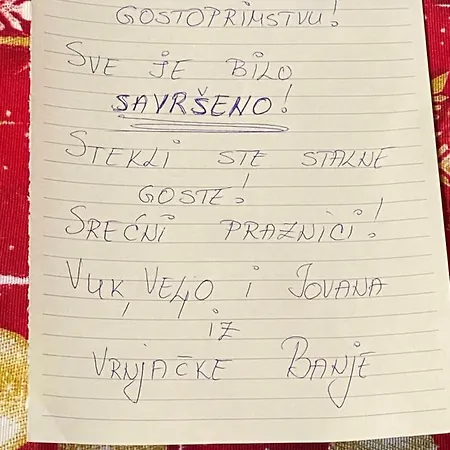 GOSTOPRIMSTVU!
SVE JE BILO
SAVRŠENO!
STEKLI STE STALNE
GOSTE!
SREĆNI PRAZNICI!
VUK, VELJO i JOVANA
iZ
VRNJAČKE BANJE